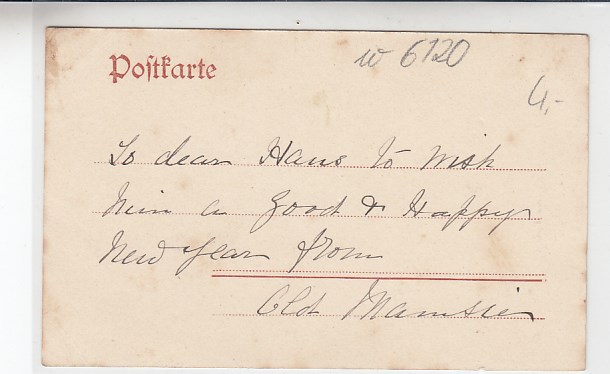 Postkarte
w 6120
4,-
To dear Hans to wish
him a Good & Happy
New Year from
Old Mamsie